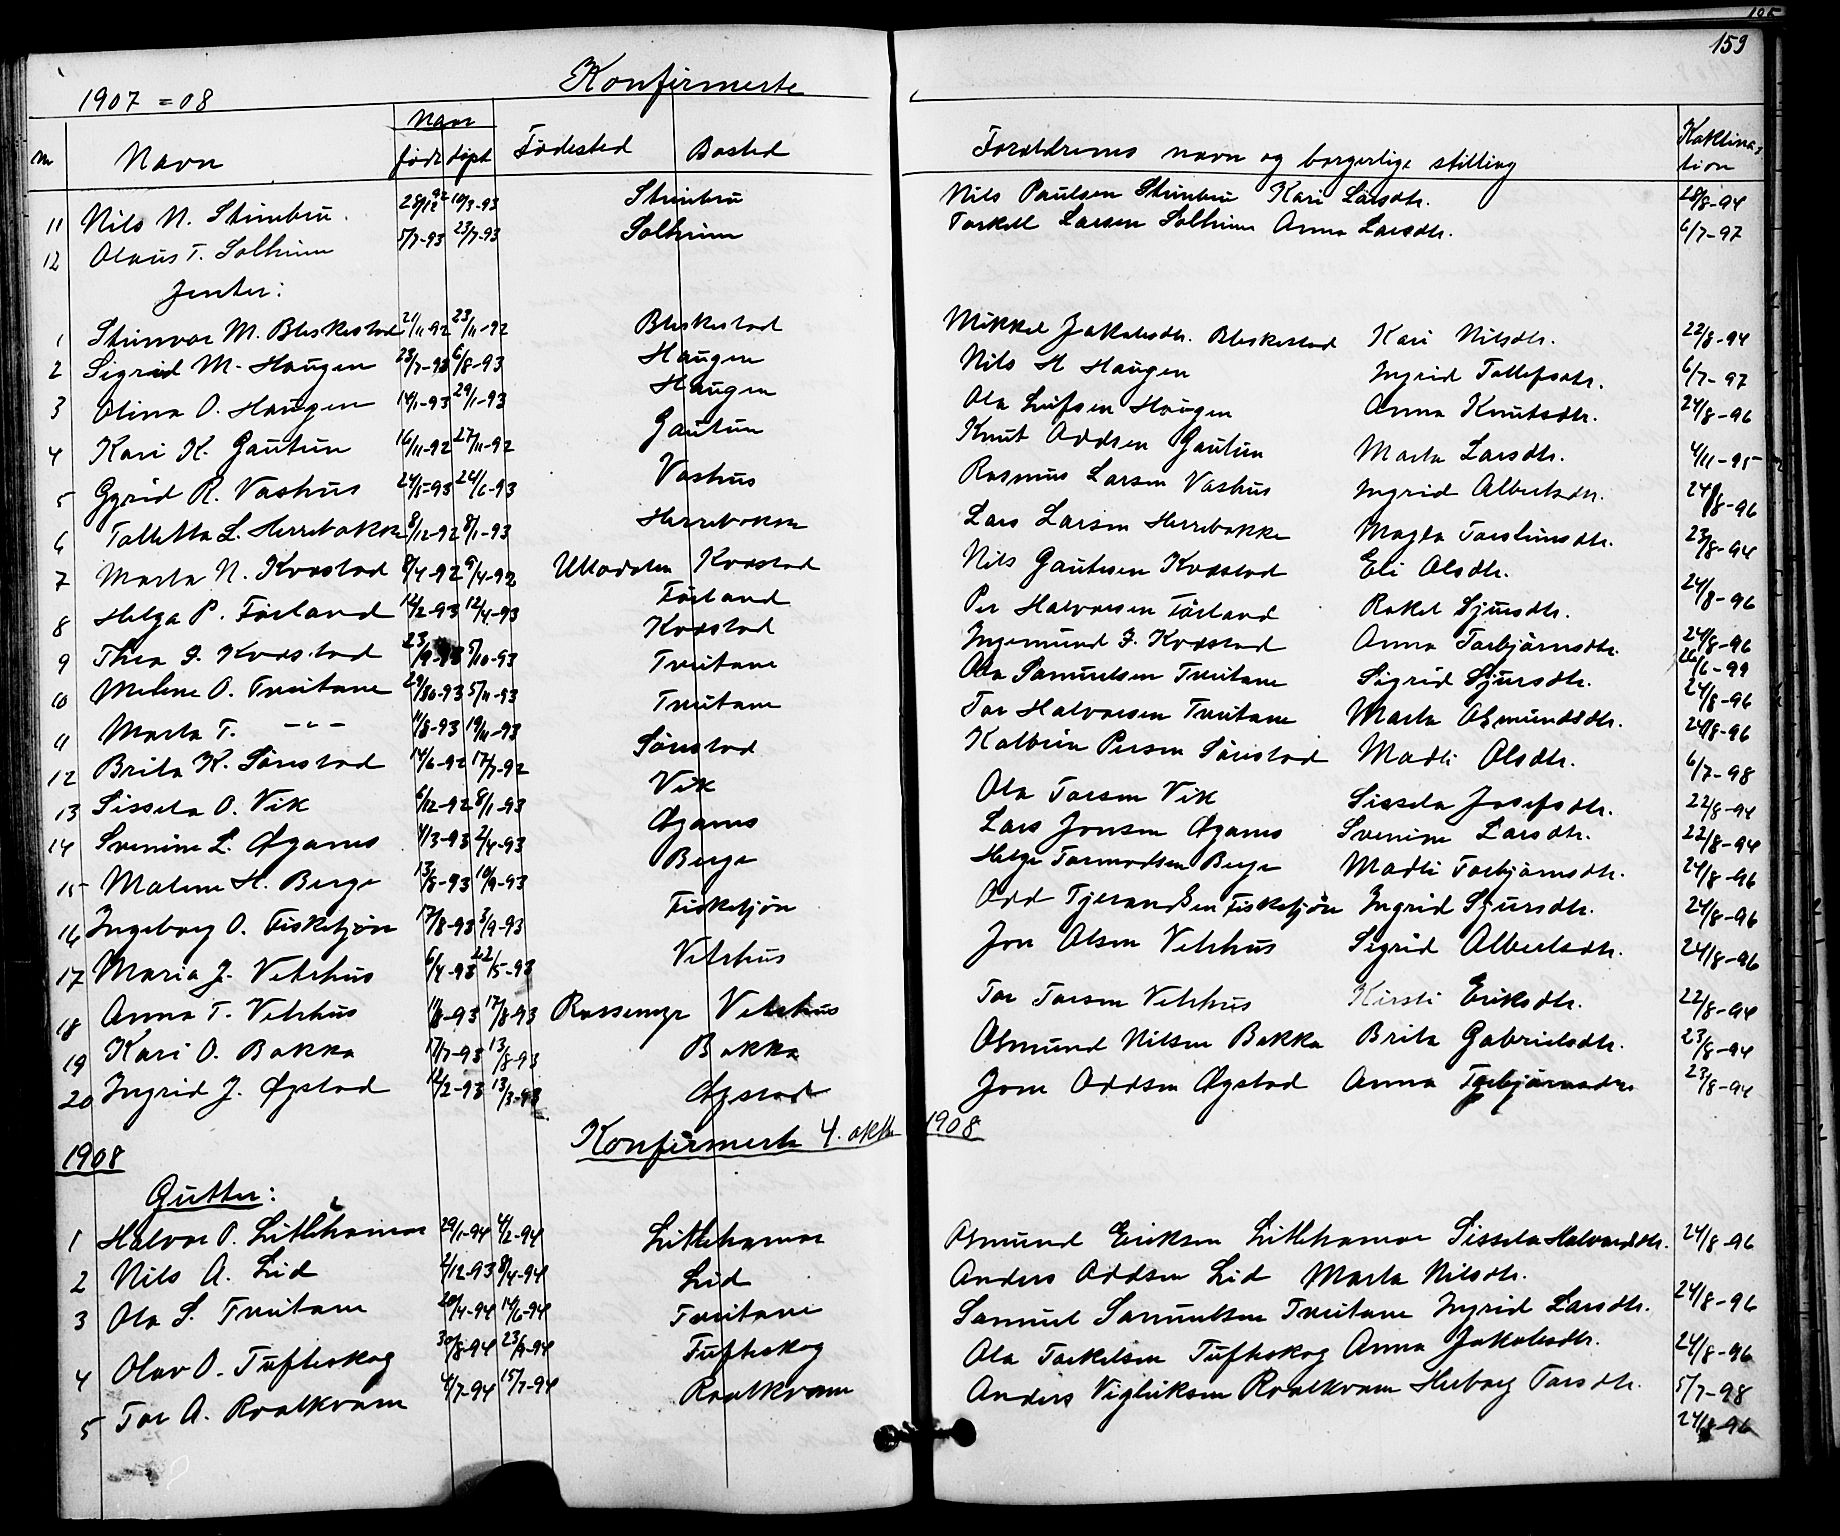 159
1907 = 08 Konfirmerte
Nr Navn Navn født døpt Fødested Bosted Foreldrenes navn og borgerlige stilling Vaktina-
tion
11 Nils N. Steinbru. 28/12 92 10/3-93 Steinbru Nils Paulsen Steinbru Kari Larsdtr. 28/8-94
12 Olaus T. Solheim 5/7-93 23/7-93 Solheim Torkell Larsen Solheim Anna Larsdtr. 6/7-97
Jenter:
1 Steinvor M. Bleskestad 21/11-92 23/11-92 Bleskestad Mikkel Jakobsdtr. Bleskestad Kari Nilsdtr. 22/8-94
2 Sigrid M. Haugen 23/7-93 6/8-93 Haugen Nils M Haugen Ingrid Tollefsdtr. 6/7-97
3 Olina O. Haugen 14/1-93 29/1-93 Haugen Ola Leifsen Haugen Anna Knutsdtr. 24/8-96
4 Kari K. Gautun 16/11-92 27/11-92 Gautun Knut Oddsen Gautun Marta Larsdtr. 4/11-95
5 Gyrid R. Vashus 24/5-93 24/6-93 Vashus Rasmus Larsen Vashus Ingrid Albertsdtr. 24/8-96
6 Talletta L. Herrebakke 8/12-92 8/1-93 Herrebakke Lars Larsen Herrebakke Magla Torsteinsdtr. 23/8-94
7 Marta N. Kvæstad 8/4-92 9/4-92 Ulladalen Kvæstad Nils Gautesen Kvæstad Eli Olsdtr. 24/8-96
8 Helga P. Førland 12/2-93 12/4-93 Førland Per Halvorsen Førland Rakel Sjursdtr. 24/8-96
9 Thea I. Kvæstad 23/9-93 5/10-93 Kvæstad Ingemund I. Kvæstad Anna Torbjørnsdtr. 26/6-99
10 Melene O. Tveitane 29/10-93 5/11-93 Tveitane Ola Samuelsen Tveitane Sigrid Sjursdtr. 24/8-96
11 Marta T. -"- 11/8-93 19/11-93 Tveitane Tor Halvorsen Tveitane Marta Osmundsdtr. 24/8-96
12 Brita K. Sørestad 14/6-92 17/7-92 Sørestad Kolbein Persen Sørestad Madli Olsdtr. 6/7-98
13 Sissela O. Vik 6/12-92 8/1-93 Vik Ola Torsen Vik Sissela Josefsdtr. 22/8-94
14 Svenine L. Øganes 4/3-93 2/4-93 Øganes Lars Jonsen Øganes Svenine Larsdtr. 22/8-94
15 Malene H. Berge 13/8-93 10/9-93 Berge Helge Tormodsen Berge Madli Torbjørnsdtr. 24/8-96
16 Ingeborg O. Fisketjøn 17/8-93 3/9-93 Fisketjøn Odd Tjerandsen Fisketjøn Ingrid Sjursdtr. 24/8-96
17 Maria J. Vetrhus 6/4-93 22/5-93 Vetrhus Jon Olsen Vetrhus Sigrid Albertsdtr. 24/8-96
18 Anna T. Vetrhus 11/8-93 17/8-93 Vetrhus Tor Torsen Vetrhus Kirsti Eriksdtr. 22/8-94
19 Kari O. Bakka 17/7-93 13/8-93 Bakka Osmund Nilsen Bakka Brita Gabrielsdtr. 23/8-94
20 Ingrid J. Øystad 12/2-93 13/3-93 Øystad Jone Oddsen Øystad Anna Torbjørnsdtr 23/8-94
1908 Konfirmerte 4. oktbr 1908
Gutter:
1 Halvor O. Litlehamar 29/1-94 4/2-94 Litlehamar Osmund Eriksen Litlehamar Sissela Halvordsdtr. 24/8-96
2 Nils A. Lid 2/12-93 8/4-94 Lid Anders Oddsen Lid Marta Nilsdtr. 24/8-96
3 Ola S. Tveitane 20/4-94 14/6-94 Tveitane Samuel Samuelsen Tveitane Ingrid Larsdtr. 24/8-96
4 Olav O. Tufteskog 30/8-94 23/9-94 Tufteskog Ola Torkelsen Tufteskog Anna Jakobsdtr. 5/7-98
5 Tor A. Roalkvam 4/7-94 15/7-94 Roalkvam Anders Vigleiksen Roalkvam Herborg Torsdtr. 24/8-96